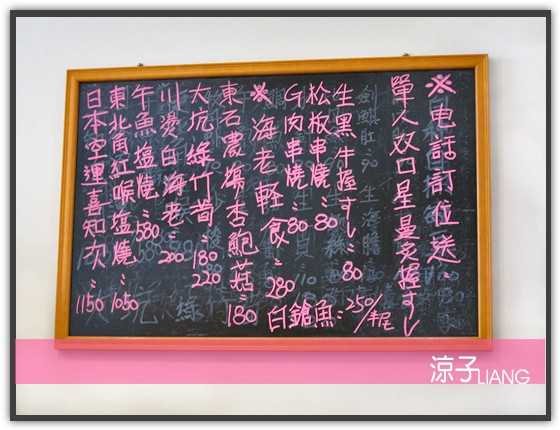 ※電話訂位送:
單人双口星曼炙握すし
生黑牛握すし:80
松板串燒:80
G肉串燒:80
※海老輕食:280
白鎗魚:250/半尾
東石農場杏鮑菇:180
大坑綠竹筍:180
220
川燙白海老:200
午魚塩燒:580
東北角紅喉塩燒:1050
日本空運喜知次:1150
涼子LIANG